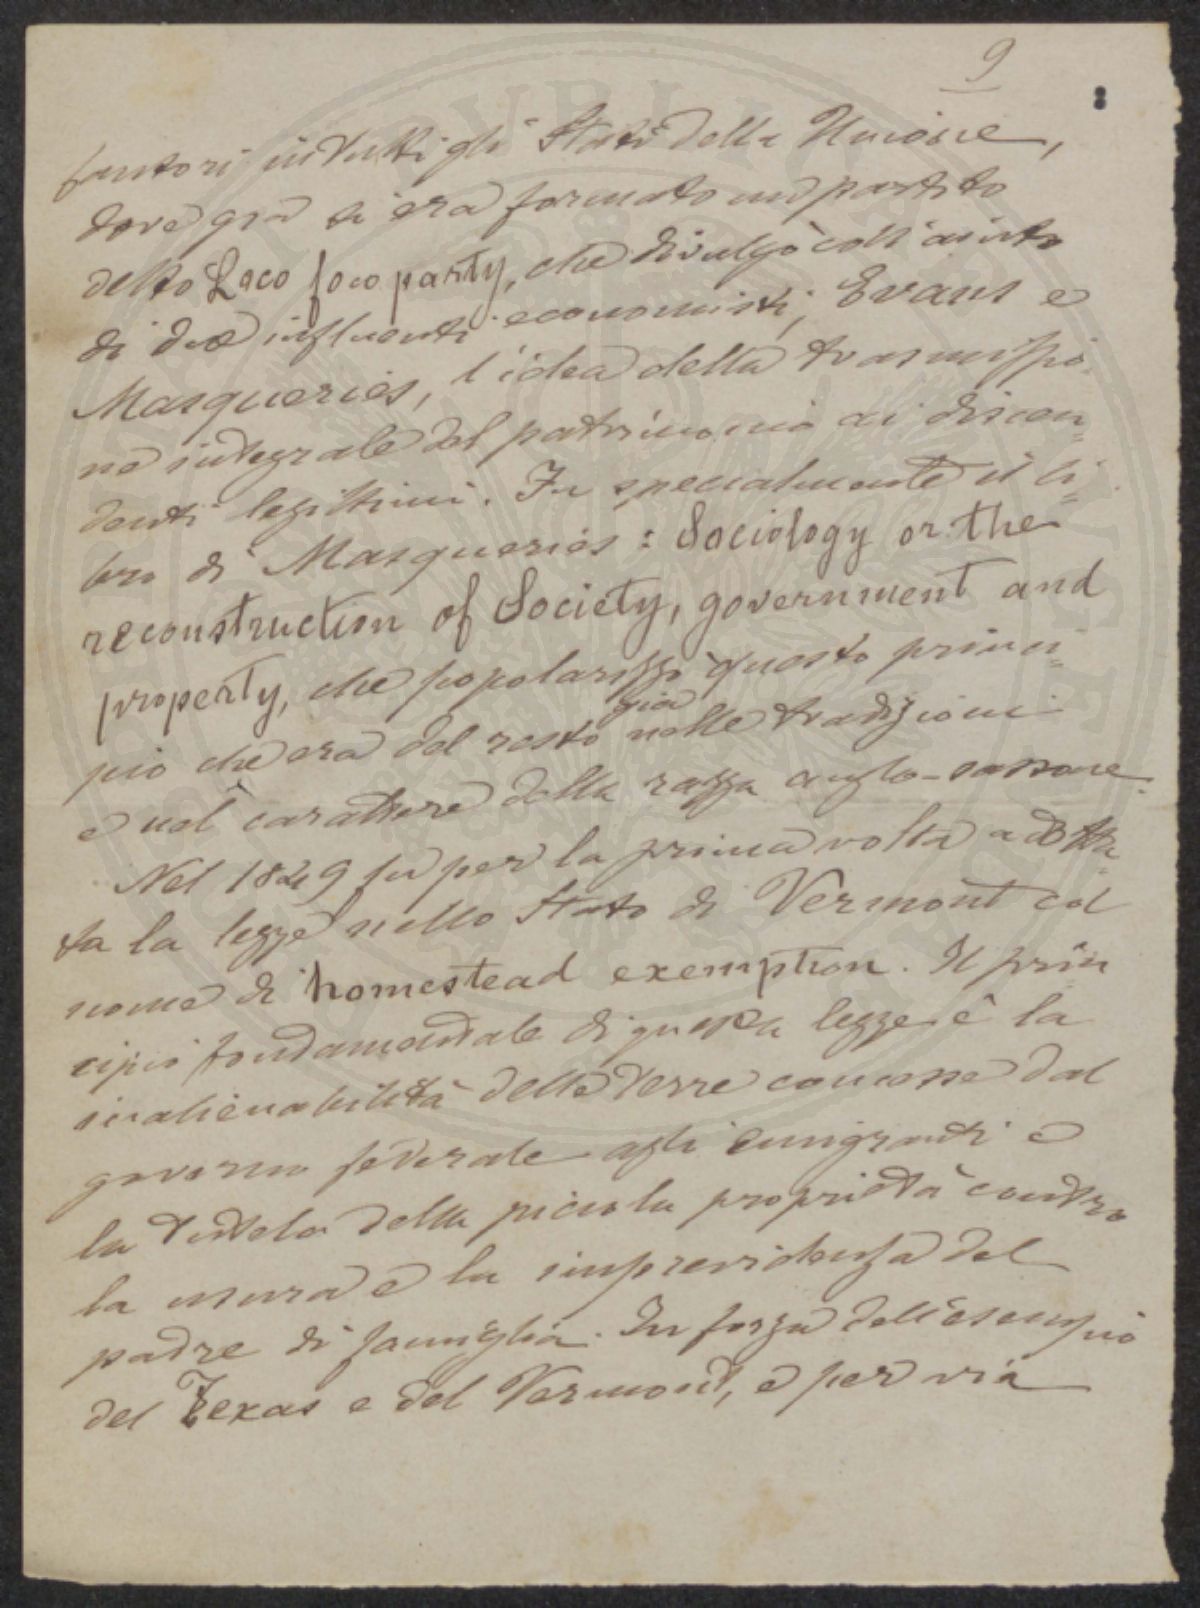 9
fautori in tutti gli Stati della Unione,
dove già si era formato un partito
detto Loco foco party, che divulgò coll'aiuto
di due influenti economisti, Evans e
Masqueriés, l'idea della trasmissio-
ne integrale del patrimonio ai discen=
denti legittimi. Fu specialmente il li=
bro di Masqueriés: Sociology or the
reconstruction of Society, government and
property, che popolarizzò questo princi=
già
pio che era del resto nelle tradizioni
e nel carattere della razza anglo-sassone.
Nel 1849 fu per la prima volta adotta=
ta la legge nello Stato di Vermont col
nome di homestead exemption. Il prin
cipio fondamentale di questa legge è la
inalienabilità delle terre concesse dal
governo federale agli emigranti e
la tutela della piccola proprietà contro
la usura e la imprevidenza del
padre di famiglia. In forza dell'esempio
del Texas e del Vermont, e per via